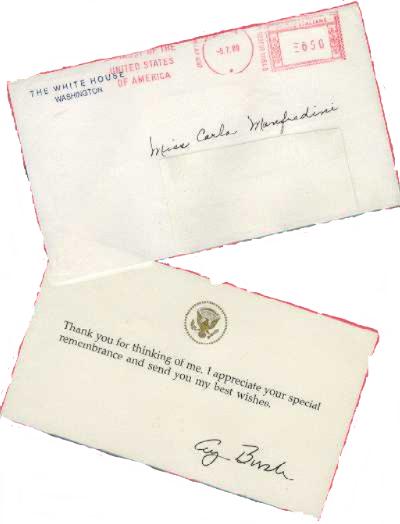 THE WHITE HOUSE
WASHINGTON
OF THE
UNITED STATES
OF AMERICA
-5.7.89
=650
Miss Carla Manfredini
Thank you for thinking of me. I appreciate your special
remembrance and send you my best wishes.
Bush